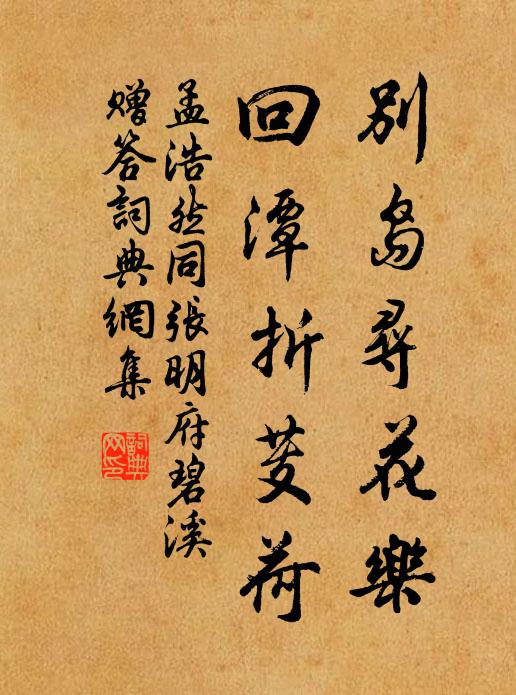 別島尋花樂
回潭折芰荷
孟浩然同張明府碧溪
贈答詞典網集
詞典网印